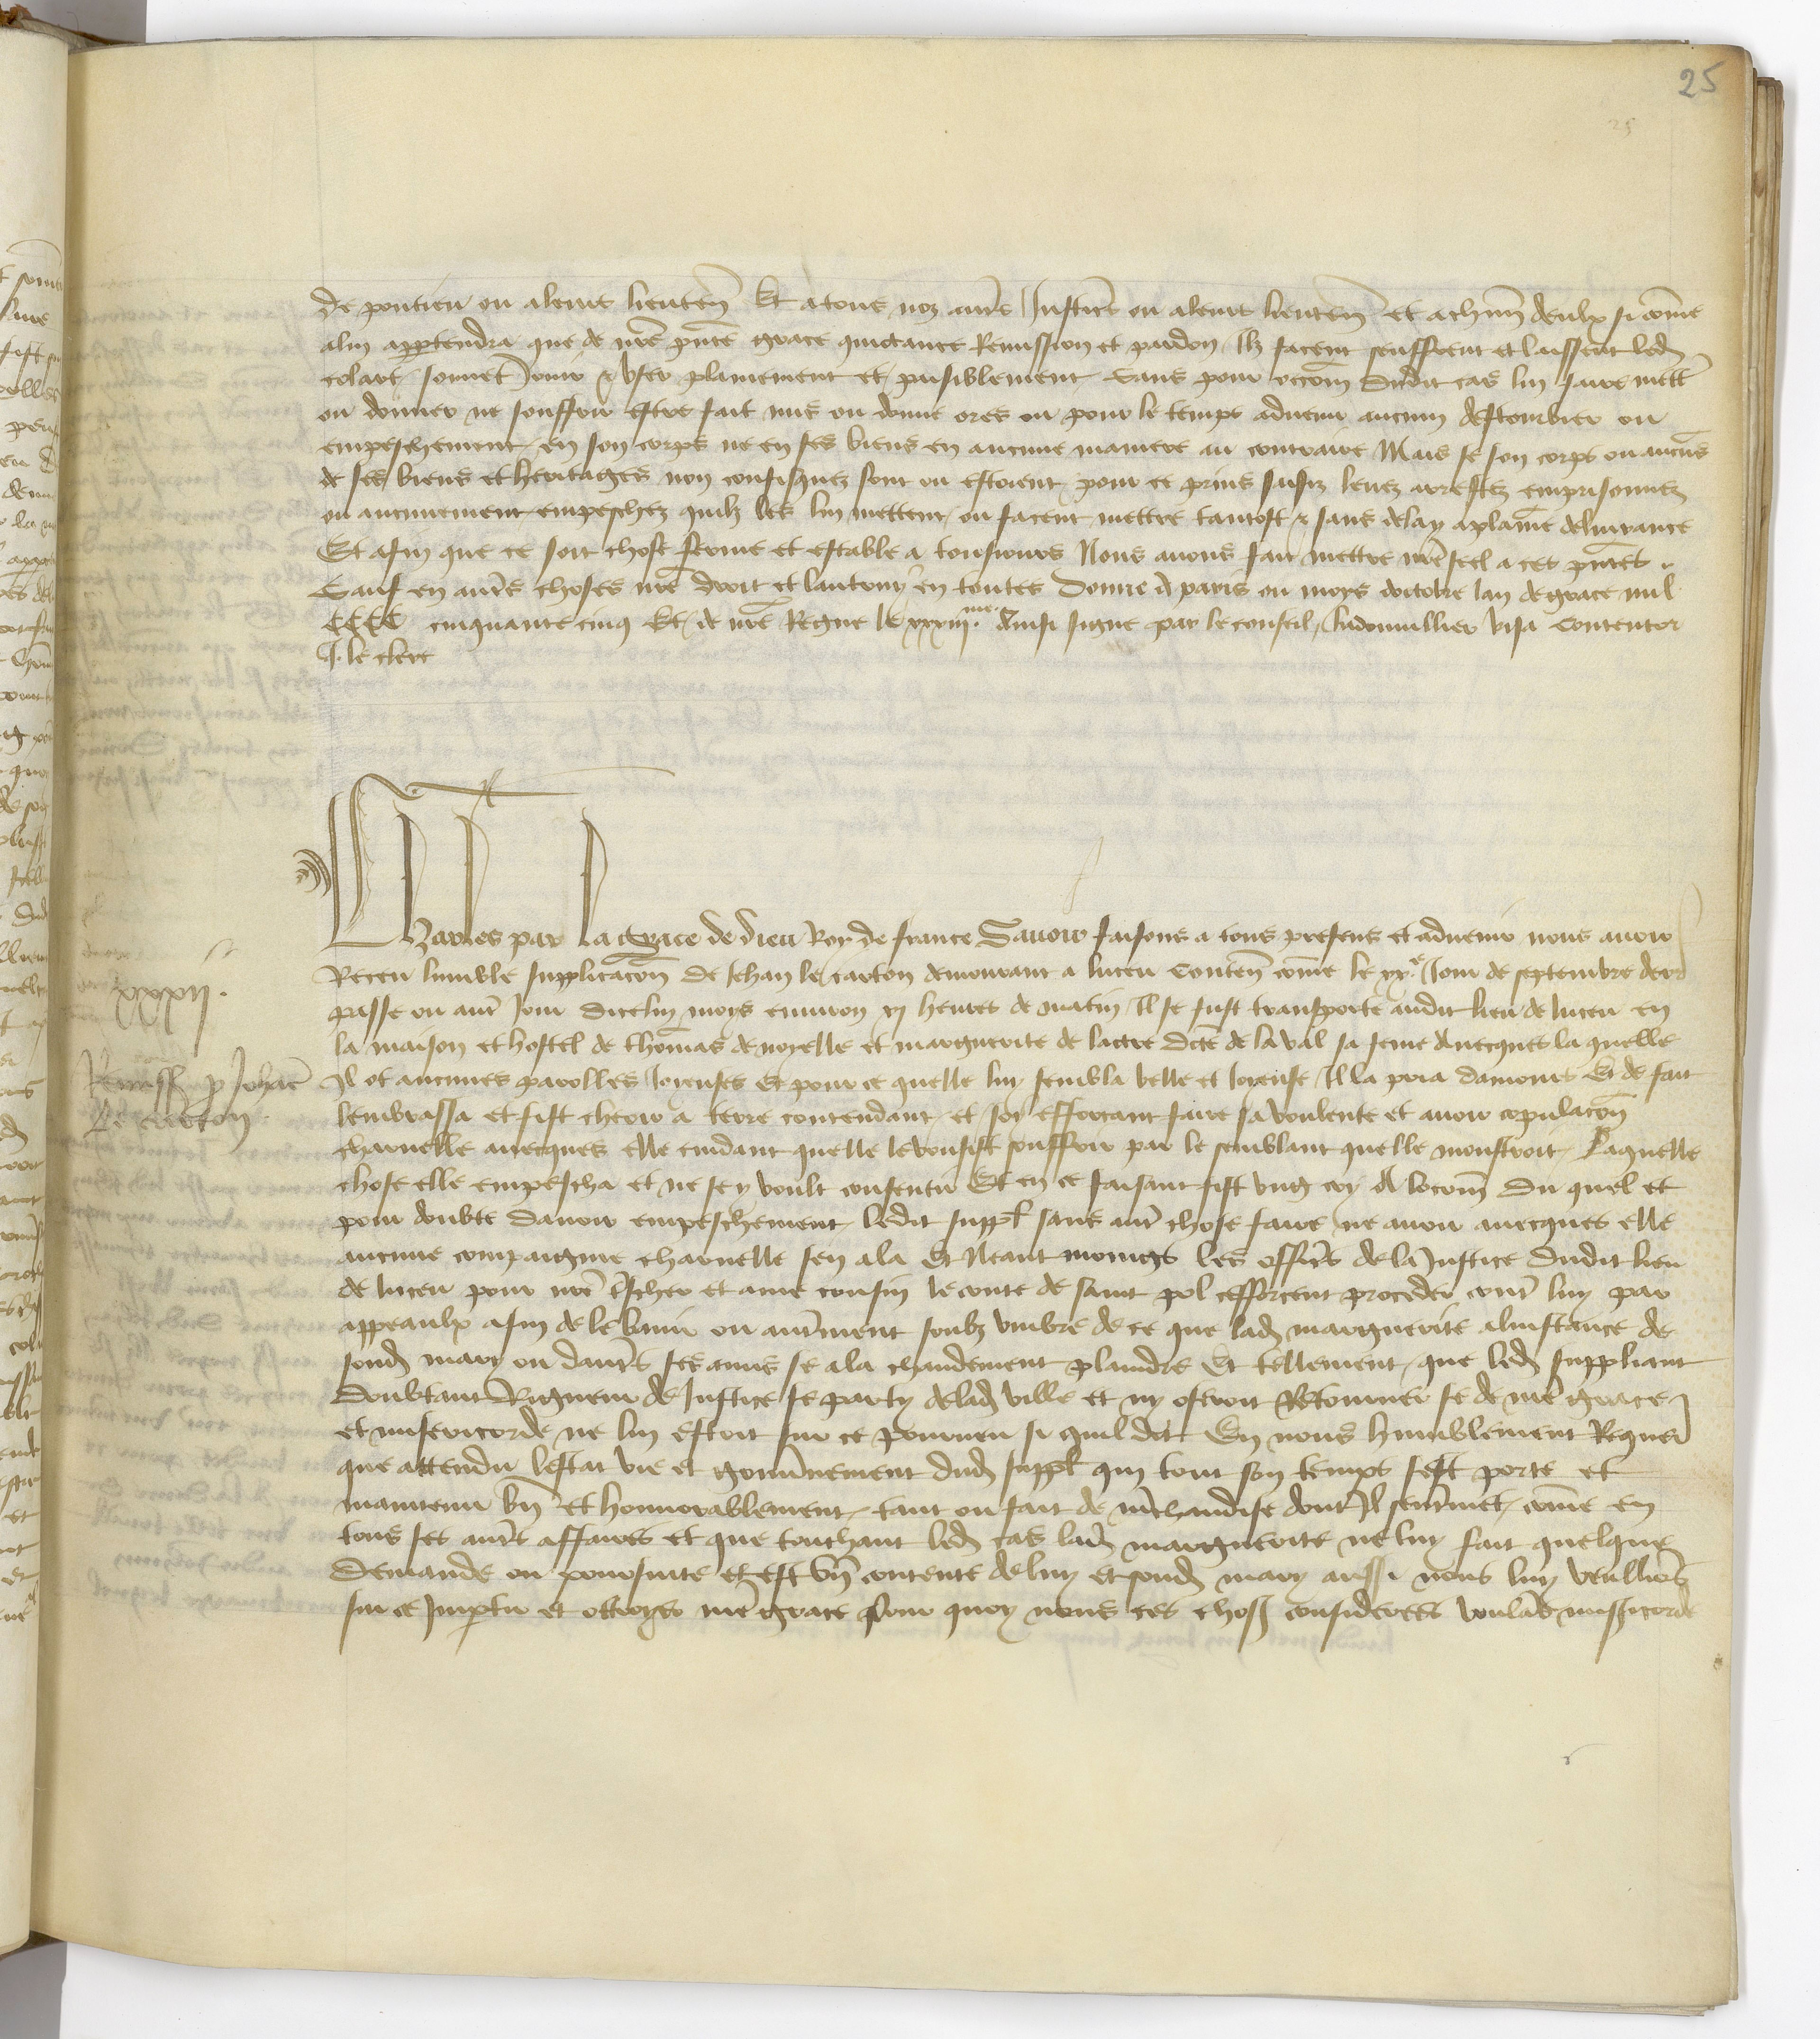 25
25
de pontieu ou a leurs lieuten̄ Et a tous noz aut̄s Justic̄s ou a leurs lieuten̄ et a chūn deulx si cōme
a luy appartendra que de nr̄e pn̄te grace quictance Remission et pardon Ilz facent seuffrent et laissent led̄
colart sonnet Joir et vser plainement et paisiblement Sans pour occoīn dudit cas luy faire mett̄
ou donner ne souffrir estre fait mis ou donne ores ou pour le temps aduenir aucun destourbier ou
empeschement en son corps ne en ses biens en aucune maniere au contraire Mais se son corps ou aucūs
de ses biens et heritages non confisquez sont ou estoient pour ce prins saisiz leuez arrestez emprisonnez
ou aucunement empeschez quilz les luy mettent ou facent mettre tantost et sans delay a plaine deliurance
Et afin que ce soit chose ferme et estable a tousiours Nous auons fait mettre nr̄e seel a ces pn̄tes
Sauf en aut̄s choses nr̄e droit et lautruy en toutes Donne a paris ou moys doctobre lan de grace mil
CCCC cinquante cinq Et de nr̄e Regne le xxxiiijme. Ainsi signe par le conseil visa Contentor
J. le clerc
Charles par la grace de dieu Roy de france Sauoir faisons a tous presens et aduenir nous auoir
Receu lumble supplicacōn de Jehan le carton demourant a luceu Conten̄ cōme le xxe Jour de septembre derr̄
passe ou aut̄ Jour dicelluy moys enuiron xj heures de matin Il se fust transporte audit lieu de luceu en
la maison et hostel de thōmas de noyelle et marguerite de lactre dicte de laval sa feme Auecques la quelle
Il ot aucunes parolles Joieuses Et pour ce quelle luy sembla belle et Joieuse Il la pria damours Et de fait
lembrassa et fist cheoir a terre contendant et soy efforcant faire sa voulente et auoir copulacōn
charnelle auecques elle cuidant quelle le voulsist souffrir par le semblant quelle monstroit Laquelle
chose elle empescha et ne sy voult consentir Et en ce faisant fist vng cry A loccoīn du quel et
pour doubte dauoir empeschement ledit suppl̄ sans aut̄ chose faire ne auoir auecques elle
aucune compaignie charnelle sen ala Et Neant moings les offic̄rs de la Justice dudit lieu
de luceu pour nr̄e t̄scher et ame cousin le conte de saint pol sefforcent proceder cont̄ luy par
appeaulx afin de le banir ou aut̄ment soubz vmbre de ce que lad̄ marguerite a linstance de
sond̄ mary ou daut̄s ses amis se ala chaudement plaindre Et tellement que led̄ suppliant
doubtant Rigueur de Justice se party de lad̄ ville et ny oseroit Retourner se de nr̄e grace
et misericorde ne luy estoit sur ce pourueu si quil dit En nous humblement Requer̄
que attendu lestat vie et gouūnement dud̄ suppl̄ qui tout son temps sest porte et
maintenu bn̄ et honnorablement tant ou fait de m̄chandise dont Il sent̄met cōme en
tous ses aut̄s affaires et que touchant led̄ cas lad̄ marguerite ne luy fait quelque
demande ou poursuite et est bn̄ contente de luy et sond̄ mary aussi nous luy veullions
sur ce Impartir et ottroyer nr̄e grace Pour quoy nous ces choses considerees voulās misericorde
xxxij.
Remissio pro Johan̄e
Le carton